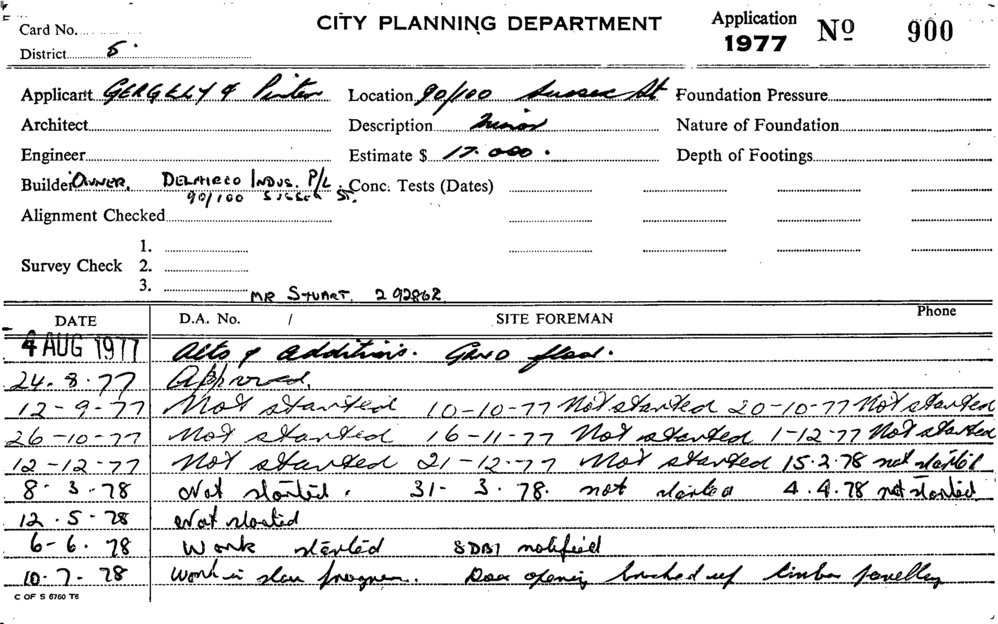 Card No. CITY PLANNING DEPARTMENT Application 1977 Nº 900
District 5.
Applicant GERGELY & Pinter Location 90/100 Sussex St Foundation Pressure
Architect Description Minor Nature of Foundation
Engineer Estimate $ 17.000. Depth of Footings
Builder OWNER. INDUS. P/L. Conc. Tests (Dates)
90/100 SUSSEX ST.
Alignment Checked
1.
Survey Check 2.
3.
MR STUART. 2 92862
DATE D.A. No. / SITE FOREMAN Phone
4 AUG 1977 Alts & additions. GRND floor.
24.8.77 Approved.
12-9-77 Not started 10-10-77 Not started 20-10-77 Not started
26-10-77 Not started 16-11-77 Not started 1-12-77 Not started
12-12-77 Not started 21-12-77 Not started 15.2.78 not started
8-3-78 Not started. 31-3.78. not started 4.4.78 not started
12.5-78 Not started
6-6.78 Work started SDBI notified
10.7-78 Work in slow progress. Door opening bricked up timber panelling
C OF S 6760 T6